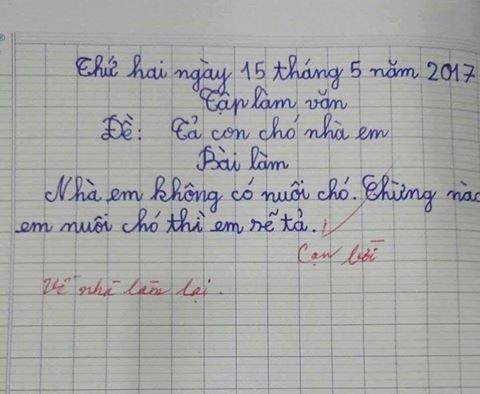 Thứ hai ngày 15 tháng 5 năm 2017
Tập làm văn
Đề: Tả con chó nhà em
Bài làm
Nhà em không có nuôi chó. Chừng nào
em nuôi chó thì em sẽ tả.
Cạn lời
Về nhà làm lại.